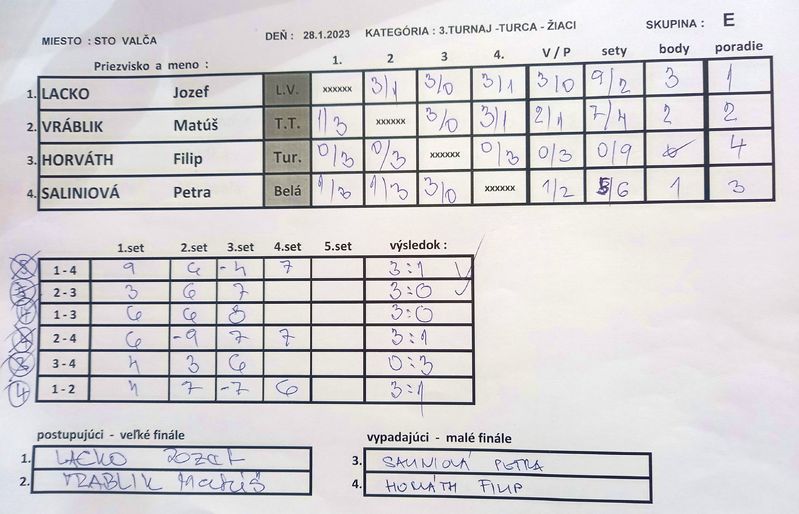 MIESTO : STO VALČA DEŇ : 28.1.2023 KATEGÓRIA : 3.TURNAJ -TURCA - ŽIACI SKUPINA : E
Priezvisko a meno : 1. 2 3 4. V / P sety body poradie
1. LACKO Jozef L.V. xxxxxx 3/1 3/0 3/1 3/0 9/2 3 1
2. VRÁBLIK Matúš T.T. 1/3 xxxxxx 3/0 3/1 2/1 7/4 2 2
3. HORVÁTH Filip Tur. 0/3 0/3 xxxxxx 0/3 0/3 0/9 4
4. SALINIOVÁ Petra Belá 1/3 1/3 3/0 xxxxxx 1/2 5/6 1 3
1.set 2.set 3.set 4.set 5.set výsledok :
1 - 4 9 6 -4 7 3:1
2 - 3 3 6 7 3:0
1 - 3 6 6 8 3:0
2 - 4 6 -9 7 7 3:1
3 - 4 4 3 6 0:3
4 1 - 2 4 7 -7 6 3:1
postupujúci - veľké finále
1. LACKO JOZEF
2. VRABLIK Matúš
vypadajúci - malé finále
3. SALINIOVÁ PETRA
4. HORVÁTH FILIP